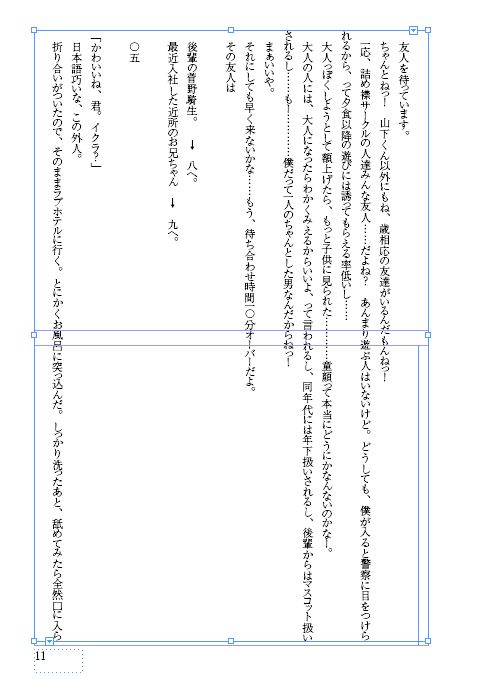 友人を待っています。
ちゃんとねっ！　山下くん以外にもね、歳相応の友達がいるんだもんねっ！
一応、詰め襟サークルの人達みんな友人……だよね？　あんまり遊ぶ人はいないけど。どうしても、僕が入ると警察に目をつけら
れるから、って夕食以降の遊びには誘ってもらえる率低いし……
大人っぽくしようとして額上げたら、もっと子供に見られた…………童顔って本当にどうにかなんないのかなー。
大人の人には、大人になったらわかくみえるからいいよ、って言われるし、同年代には年下扱いされるし、後輩からはマスコット扱い
されるし……も―――……僕だって一人のちゃんとした男なんだからねっ！
まぁいいや。
それにしても早く来ないかな……もう、待ち合わせ時間一〇分オーバーだよ。
その友人は
後輩の菅野騎生。　→　八へ。
最近入社した近所のお兄ちゃん　→　九へ。
〇五
「かわいいね、君。イクラ？」
日本語巧いな、この外人。
折り合いがついたので、そのままラブホテルに行く。とにかくお風呂に突っ込んだ。しっかり洗ったあと、舐めてみたら全然口に入ら
11